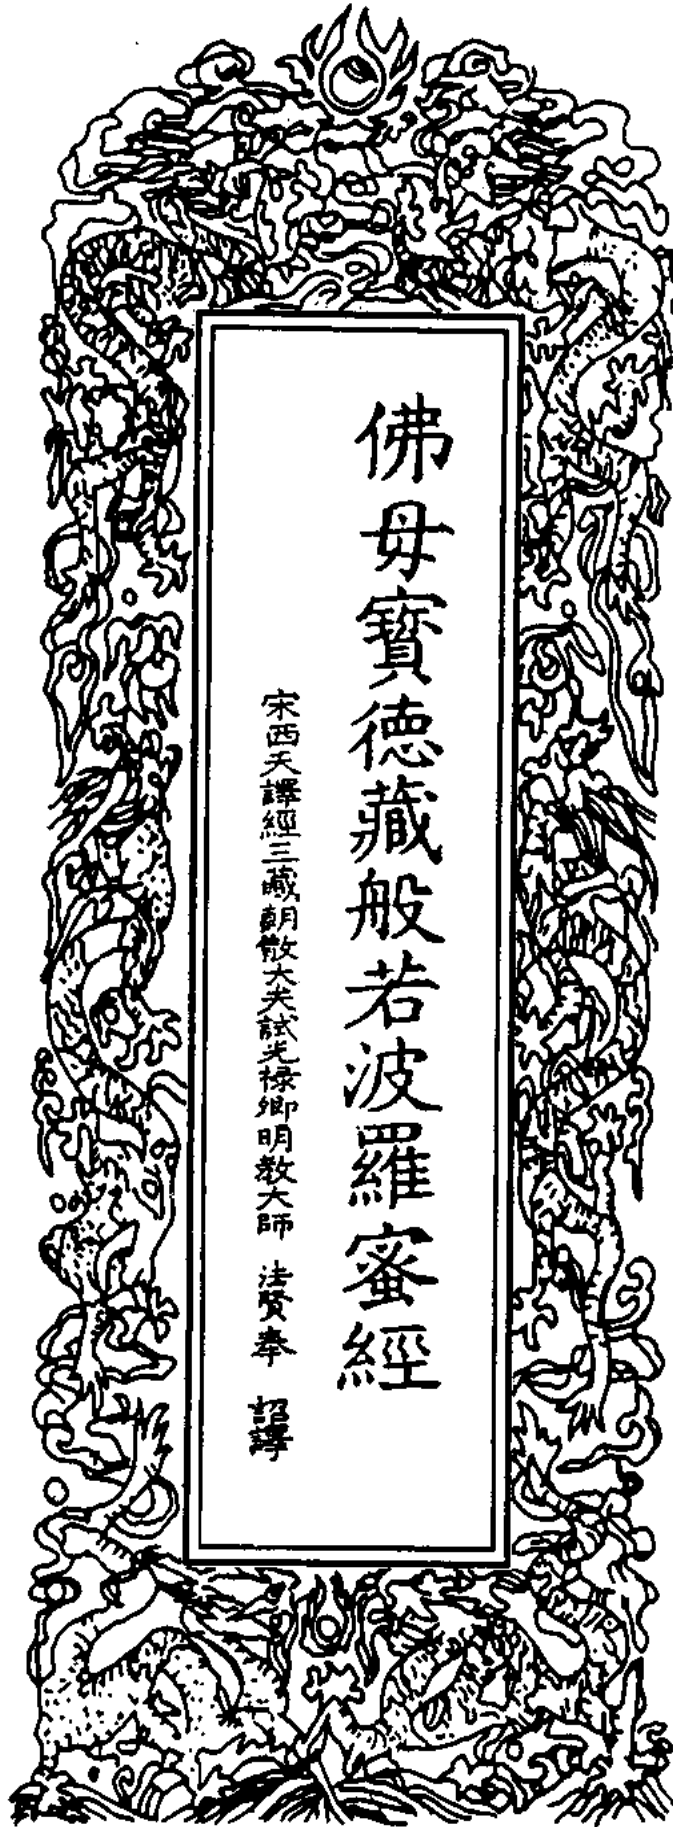 佛母寶德藏般若波羅蜜經
宋西天譯經三藏朝散大夫試光祿卿明教大師 法賢奉 詔譯